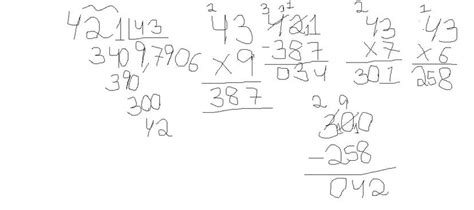 421 43
340 9,7906
390
300
42
2
43
x9
387
3 1 1
421
-387
034
2
43
x7
301
1
43
x6
258
2 9
300
-258
042